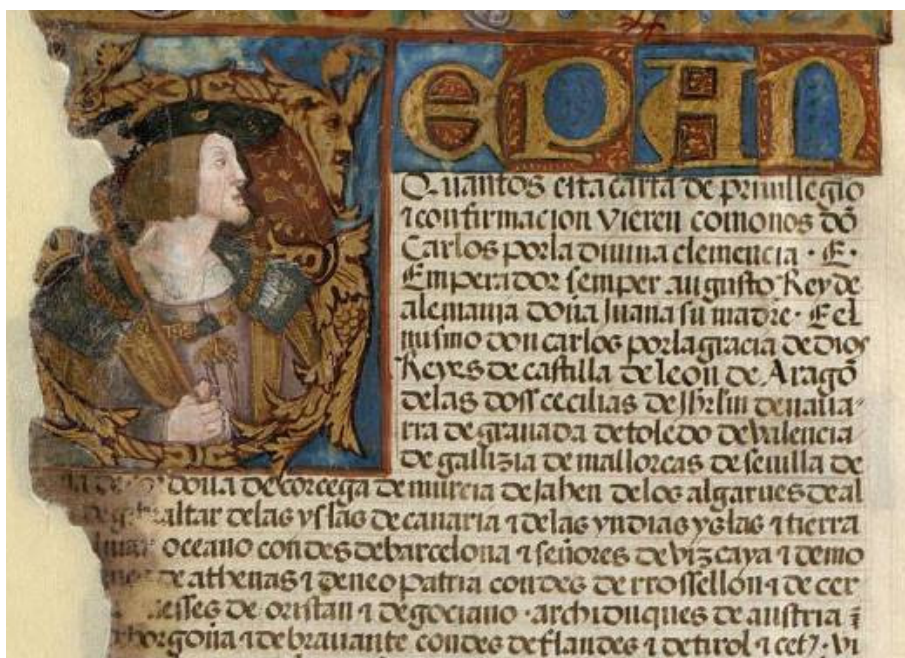 EPAN
Quantos esta carta de preuillegio
⁊ confirmacion vieren como nos dõ
Carlos por la diuina clemencia · E ·
Emperador semper augusto Rey de
alemania doña Juana su madre · E el
mismo don carlos por la gracia de dios
Reyes de castilla de leon de Aragõ
de las doss cecilias de Jhrlm de naua-
rra de granada de toledo de valencia
de gallizia de mallorcas de seuilla de
doua de corcega de murcia de Jahen de los algarues de al
altar de las yslas de canaria ⁊ de las yndias yslas ⁊ tierra
oceano condes de barcelona ⁊ señores de vizcaya ⁊ de mo
de athenas ⁊ de neopatria condes de rrossellon ⁊ de cer
esses de oristan ⁊ de gociano · archiduques de austria ⁊
borgoña ⁊ de brauante condes de flandes ⁊ de tirol ⁊ cet · vi